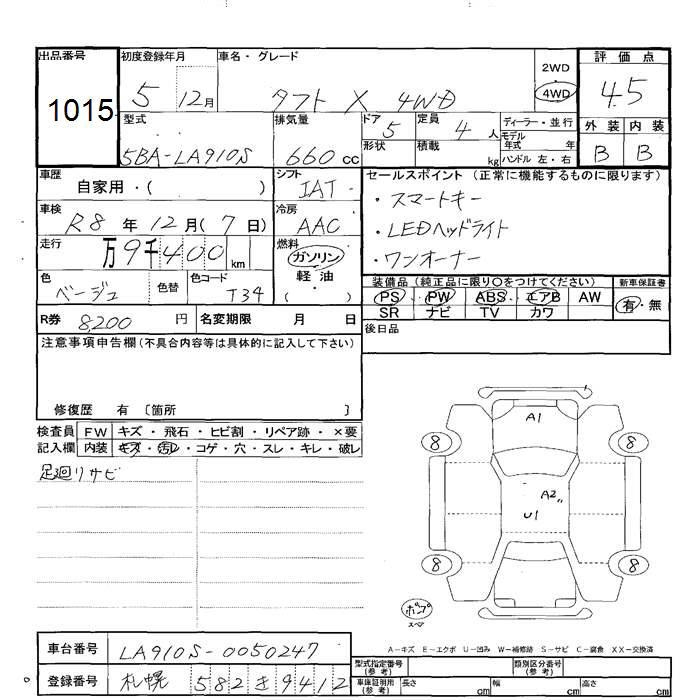 出品番号 初度登録年月 車名・グレード 評価点
1015 5 12月 タフト X 4WD 2WD 4WD 4.5
型式 排気量 ドア 定員 ディーラー・並行 外装 内装
5BA-LA910S 660cc 5 4人 モデル年式 年 B B
形状 積載 kg ハンドル 左・右
車歴 シフト セールスポイント(正常に機能するものに限ります)
自家用・( ) IAT ・スマートキー
車検 冷房 ・LEDヘッドライト
R8年 12月(7日) AAC ・ワンオーナー
走行 燃料
万9千400km ガソリン 軽油 ( )
色 色替 色コード 装備品(純正品に限り○をつけてください) 新車保証書
ベージュ T34 PS PW ABS エアB AW 有・無
SR ナビ TV カワ
R券 8,200円 名変期限 月 日 後日品
注意事項申告欄(不具合内容等は具体的に記入して下さい)
修復歴 有 〔箇所 〕
検査員 FW キズ・飛石・ヒビ割・リペア跡・×要
記入欄 内装 キズ・汚れ・コゲ・穴・スレ・キレ・破レ
足廻リサビ
A1
8 8
A2
U1
8 8
ポンプ
スペア
A-キズ E-エクボ U-凹み W-補修跡 S-サビ C-腐食 XX-交換済
車台番号 LA910S-0050247 型式指定番号(参考) 類別区分番号(参考)
登録番号 札幌 582 き 9412 車庫証明用(参考) 長さ cm 幅 cm 高さ cm